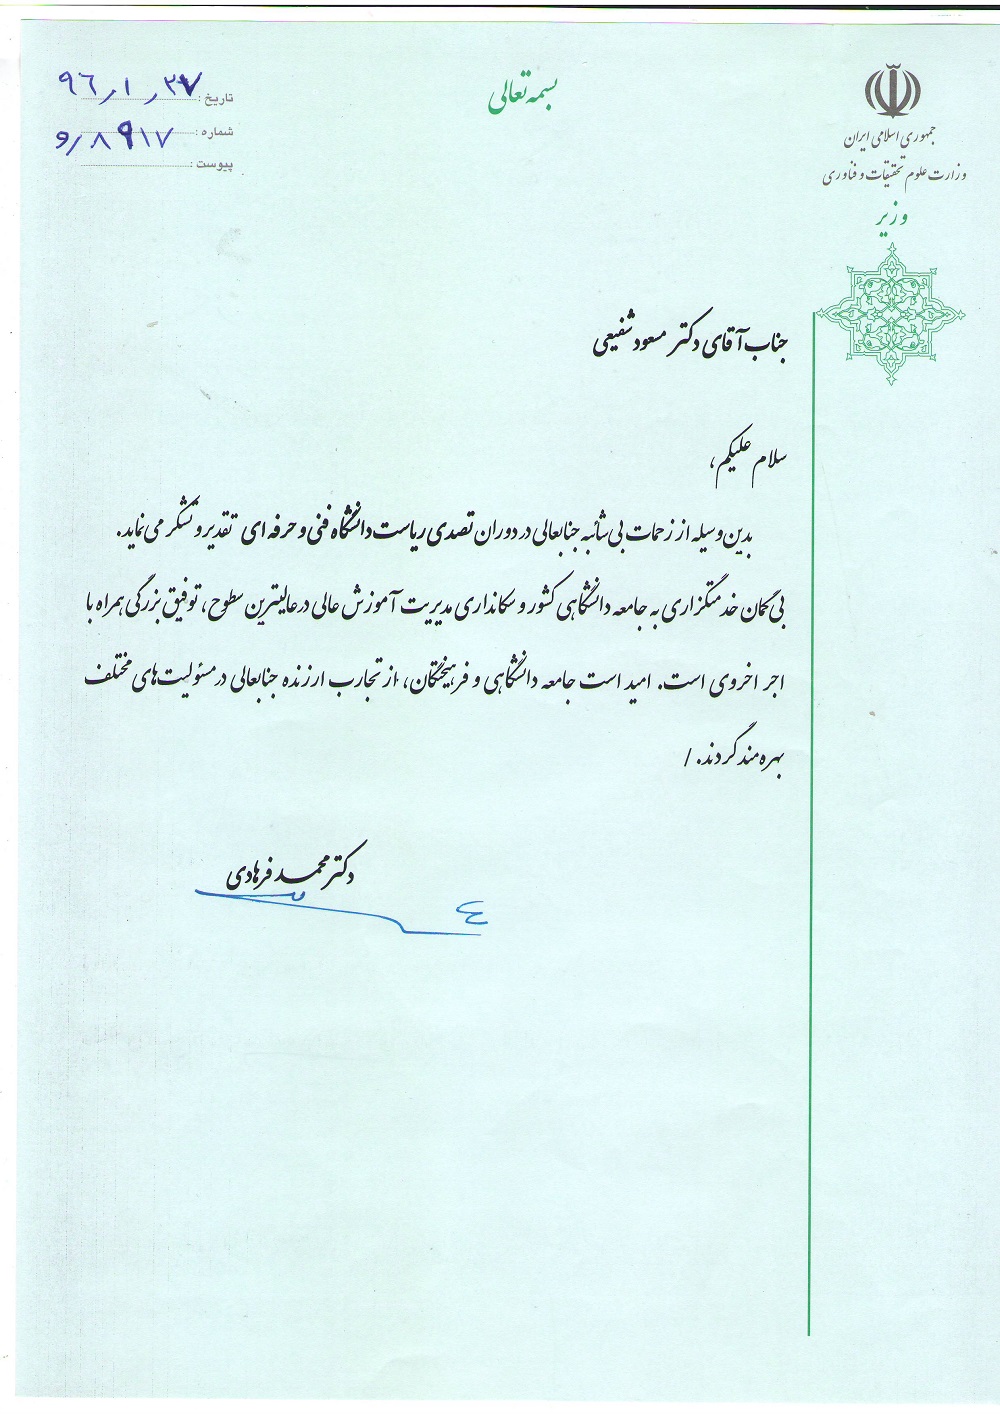 بسمه تعالی
جمهوری اسلامی ایران
وزارت علوم تحقیقات و فناوری
وزیر
تاریخ : ۹۶/۱/۲۷
شماره : ۸۹۱۷/و
پیوست :
جناب آقای دکتر مسعود شفیعی
سلام علیکم،
بدین وسیله از زحمات بی شائبه جنابعالی در دوران تصدی ریاست دانشگاه فنی و حرفه ای تقدیر و تشکر می نماید.
بی گمان خدمتگزاری به جامعه دانشگاهی کشور و سکانداری مدیریت آموزش عالی در عالیترین سطوح، توفیق بزرگی همراه با
اجر اخروی است. امید است جامعه دانشگاهی و فرهیختگان، از تجارب ارزنده جنابعالی در مسئولیت های مختلف
بهره مند گردند. /
دکتر محمد فرهادی